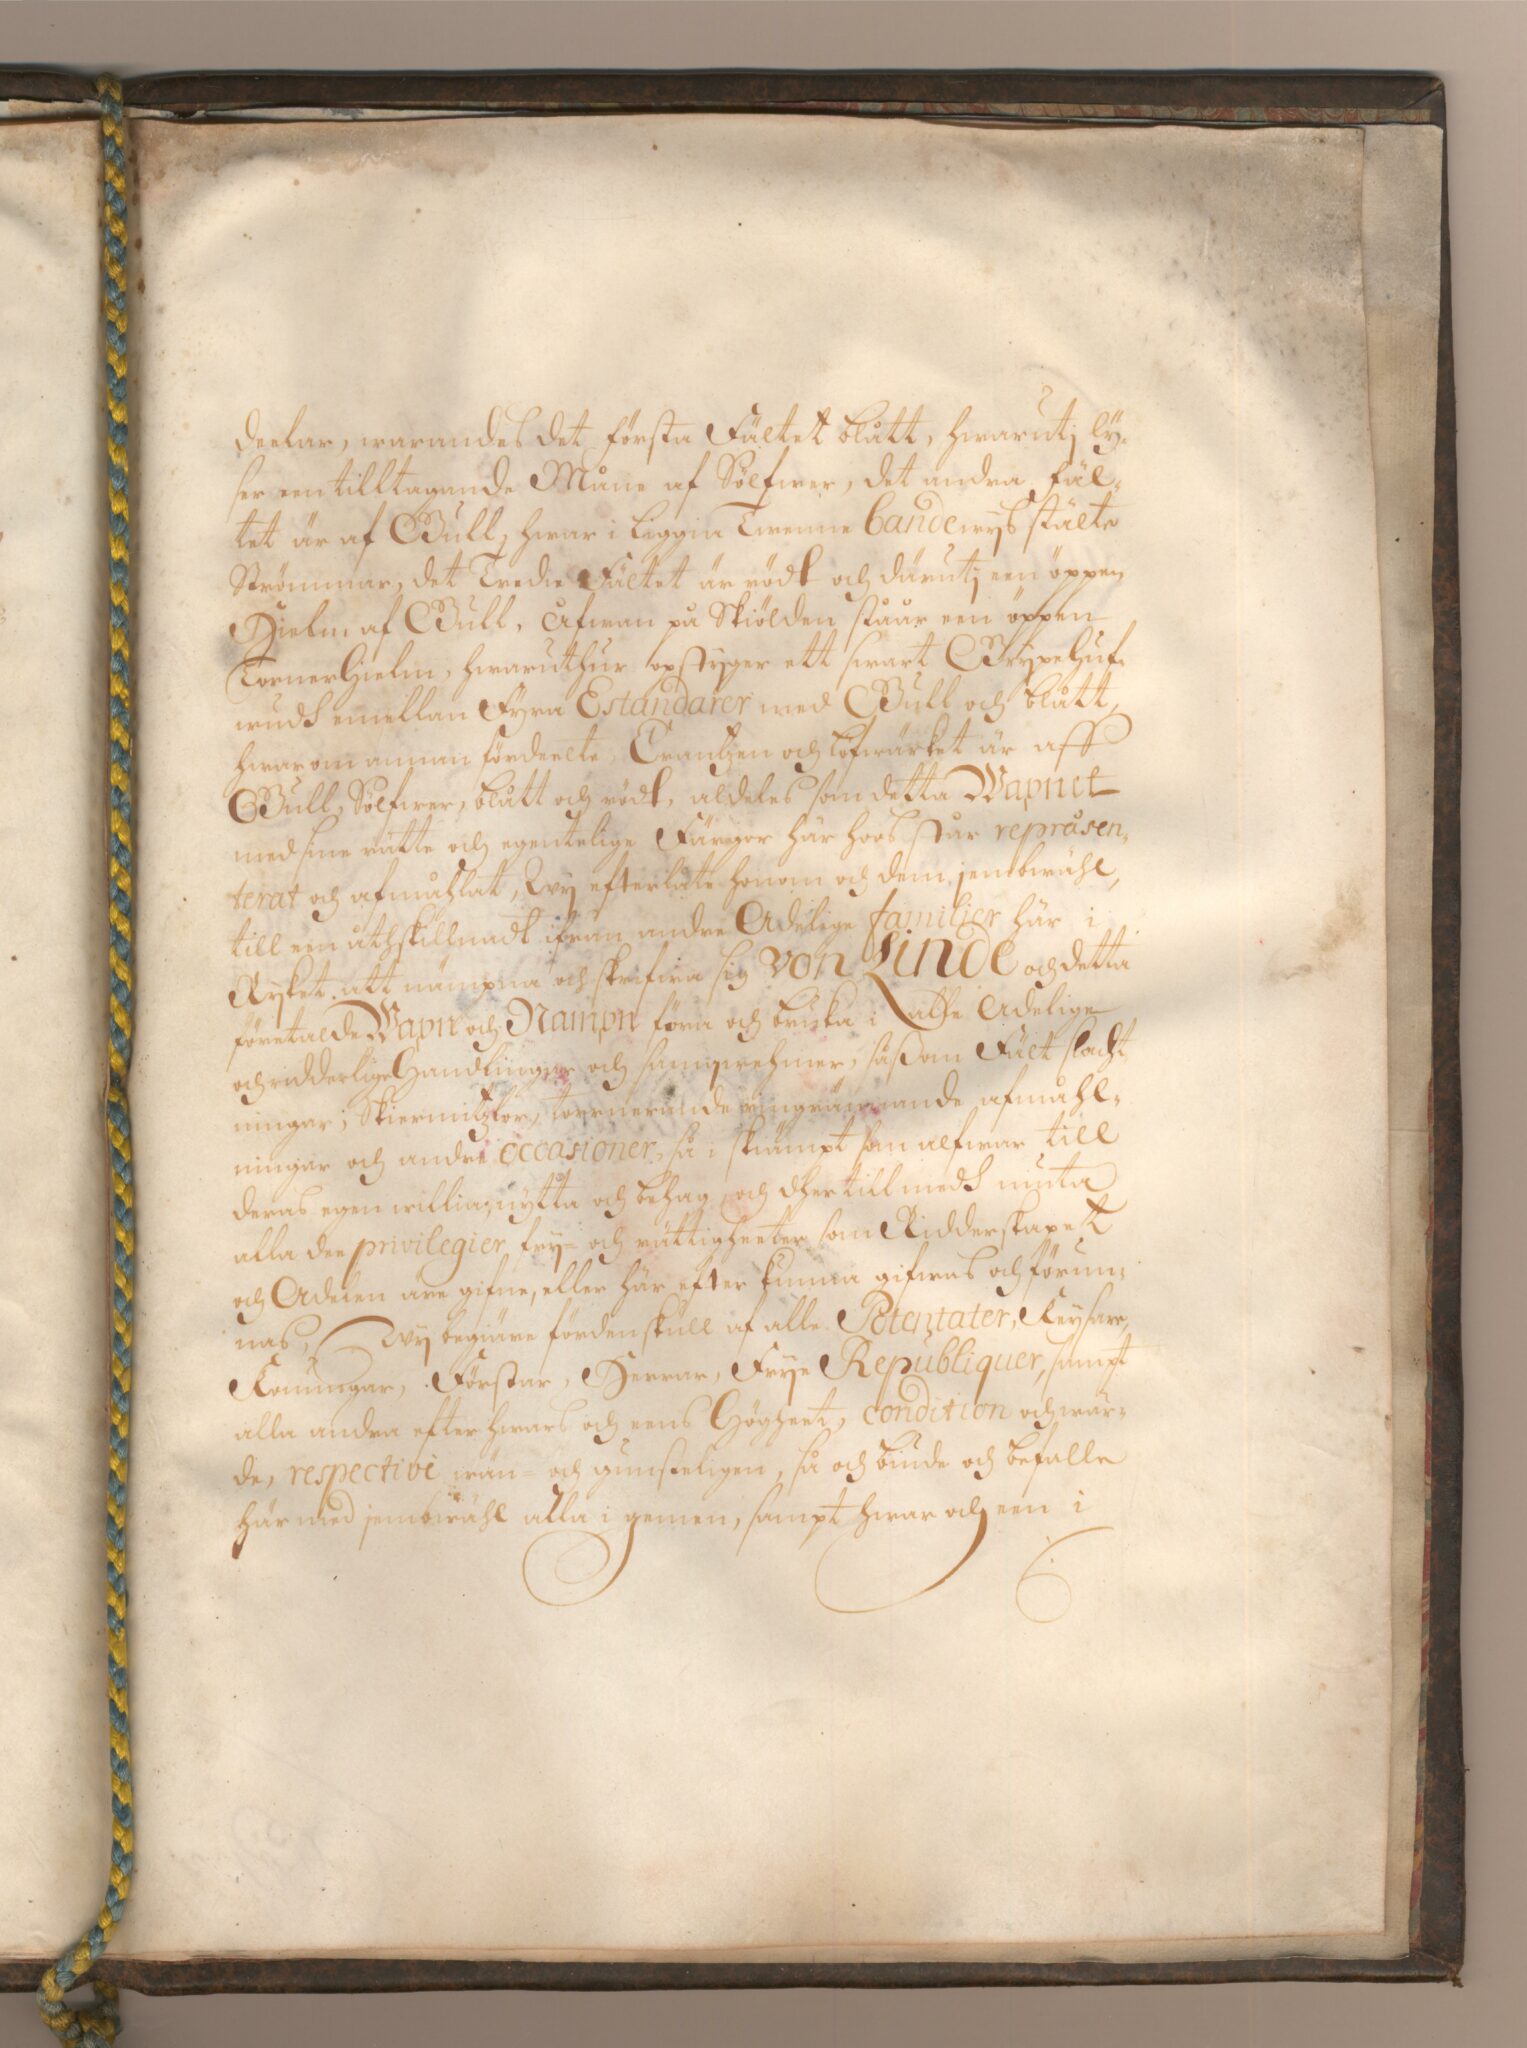 deelar, warandes det första Fältet blått, hwarutj lÿ-
ser een tilltagande Måne af Sölfwer, det andra fäl-
tet är af Gull, hwar i liggia Twenne bandewÿs stälte
Strömmar, det Tredie Fältet är rödt och därutj een öppen
Hielm af Gull, Ofwan på Skiölden stååår een öppen
Tornerhielm, hwaruthur opstÿger ett swart Grÿpehuf-
wudh emellan Fÿra Estandarer med Gull och blått,
hwar om annan fördeelte, Crantzen och löfwärket är aff
Gull, Sölfwer, blått och rödt, aldeles som detta Wapnet
med sine rätte och egentelige Färgor här hoos står repræsen-
terat och afmåhlat, Wÿ efterlåte honom och dem jembwähl,
till een åthskillnadt ifrån andre Adelige familier här i
Rÿket att nämpna och skrifwa sig von Linde och detta
företalde Wapn och Nampn föra och bruka i alle Adelige
och ridderlige Handlingar och sampqwehmer, såsom Fält slacht
ningar, Skiermitzlor, tornerande ringrännande afmåhl-
ningar och andre occasioner, så i skiämpt som alfwar till
deras egen willia, nÿtta och behag, och dher till medh niuta
alla dee privilegier frÿ- och rättigheeter som Ridderskapet
och Adelen äre gifne, eller här efter kunna gifwas och förun-
nas, Wÿ begiäre fördenskull af alle Potentater, Keÿsare,
Konungar, Förstar, Herrar, Frÿe Republiquer, sampt
alla andra efter hwars och eens Högheet, condition och wär-
de, respectivè wän- och gunsteligen, så och biude och befalle
här med jembwähl alla i gemen, sampt hwar och een i